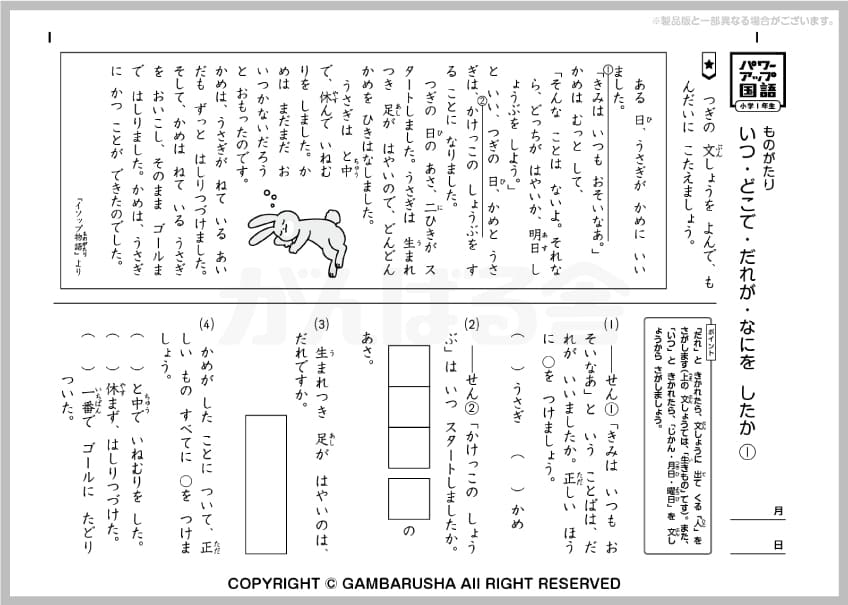 ※製品版と一部異なる場合がございます。
1
1
パワー
アップ
国語
小学1年生
ものがたり
いつ・どこで・だれが・なにを したか ①
月
日
★
つぎの 文しょうを よんで、も
ぶん
んだいに こたえましょう。
ある 日、うさぎが かめに いい
ひ
ました。
①「きみは いつも おそいなあ。」
かめは むっと して、
「そんな ことは ないよ。それな
ら、どっちが はやいか、明日 し
あす
ょうぶを しよう。」
と いい、つぎの 日、かめと うさ
ひ
ぎは、②かけっこの しょうぶを す
る ことに なりました。
つぎの 日の あさ、二ひきが ス
ひ
に
タートしました。うさぎは 生まれ
う
つき 足が はやいので、どんどん
あし
かめを ひきはなしました。
うさぎは と中
ちゅう
で、休んで いねむ
やす
りを しました。か
めは まだまだ お
いつかないだろう
と おもったのです。
かめは、うさぎが ねて いる あい
だも ずっと はしりつづけました。
そして、かめは ねて いる うさぎ
を おいこし、そのまま ゴールま
で はしりました。かめは、うさぎ
に かつ ことが できたのでした。
『イソップ物語』より
ものがたり
がんばる舎
ポイント
「だれ」と きかれたら、文しょうに 出て くる 「人」を
ぶん
で
ひと
さがします(上の 文しょうでは、「生きもの」です)。また、
うえ
ぶん
い
「いつ」と きかれたら、「じかん・月日・曜日」を 文し
つきひ
ようび
ぶん
ょうから さがしましょう。
(1) ――せん①「きみは いつも お
そいなあ」と いう ことばは、だ
れが いいましたか。正しい ほう
ただ
に ○を つけましょう。
( ) うさぎ ( ) かめ
(2) ――せん②「かけっこの しょう
ぶ」は いつ スタートしましたか。
の
あさ。
(3) 生まれつき 足が はやいのは、
う
あし
だれですか。
(4) かめが した ことに ついて、正
ただ
しい もの すべてに ○を つけま
しょう。
( ) と中で いねむりを した。
ちゅう
( ) 休まず、はしりつづけた。
やす
( ) 一番で ゴールに たどり
いちばん
ついた。
COPYRIGHT © GAMBARUSHA All RIGHT RESERVED